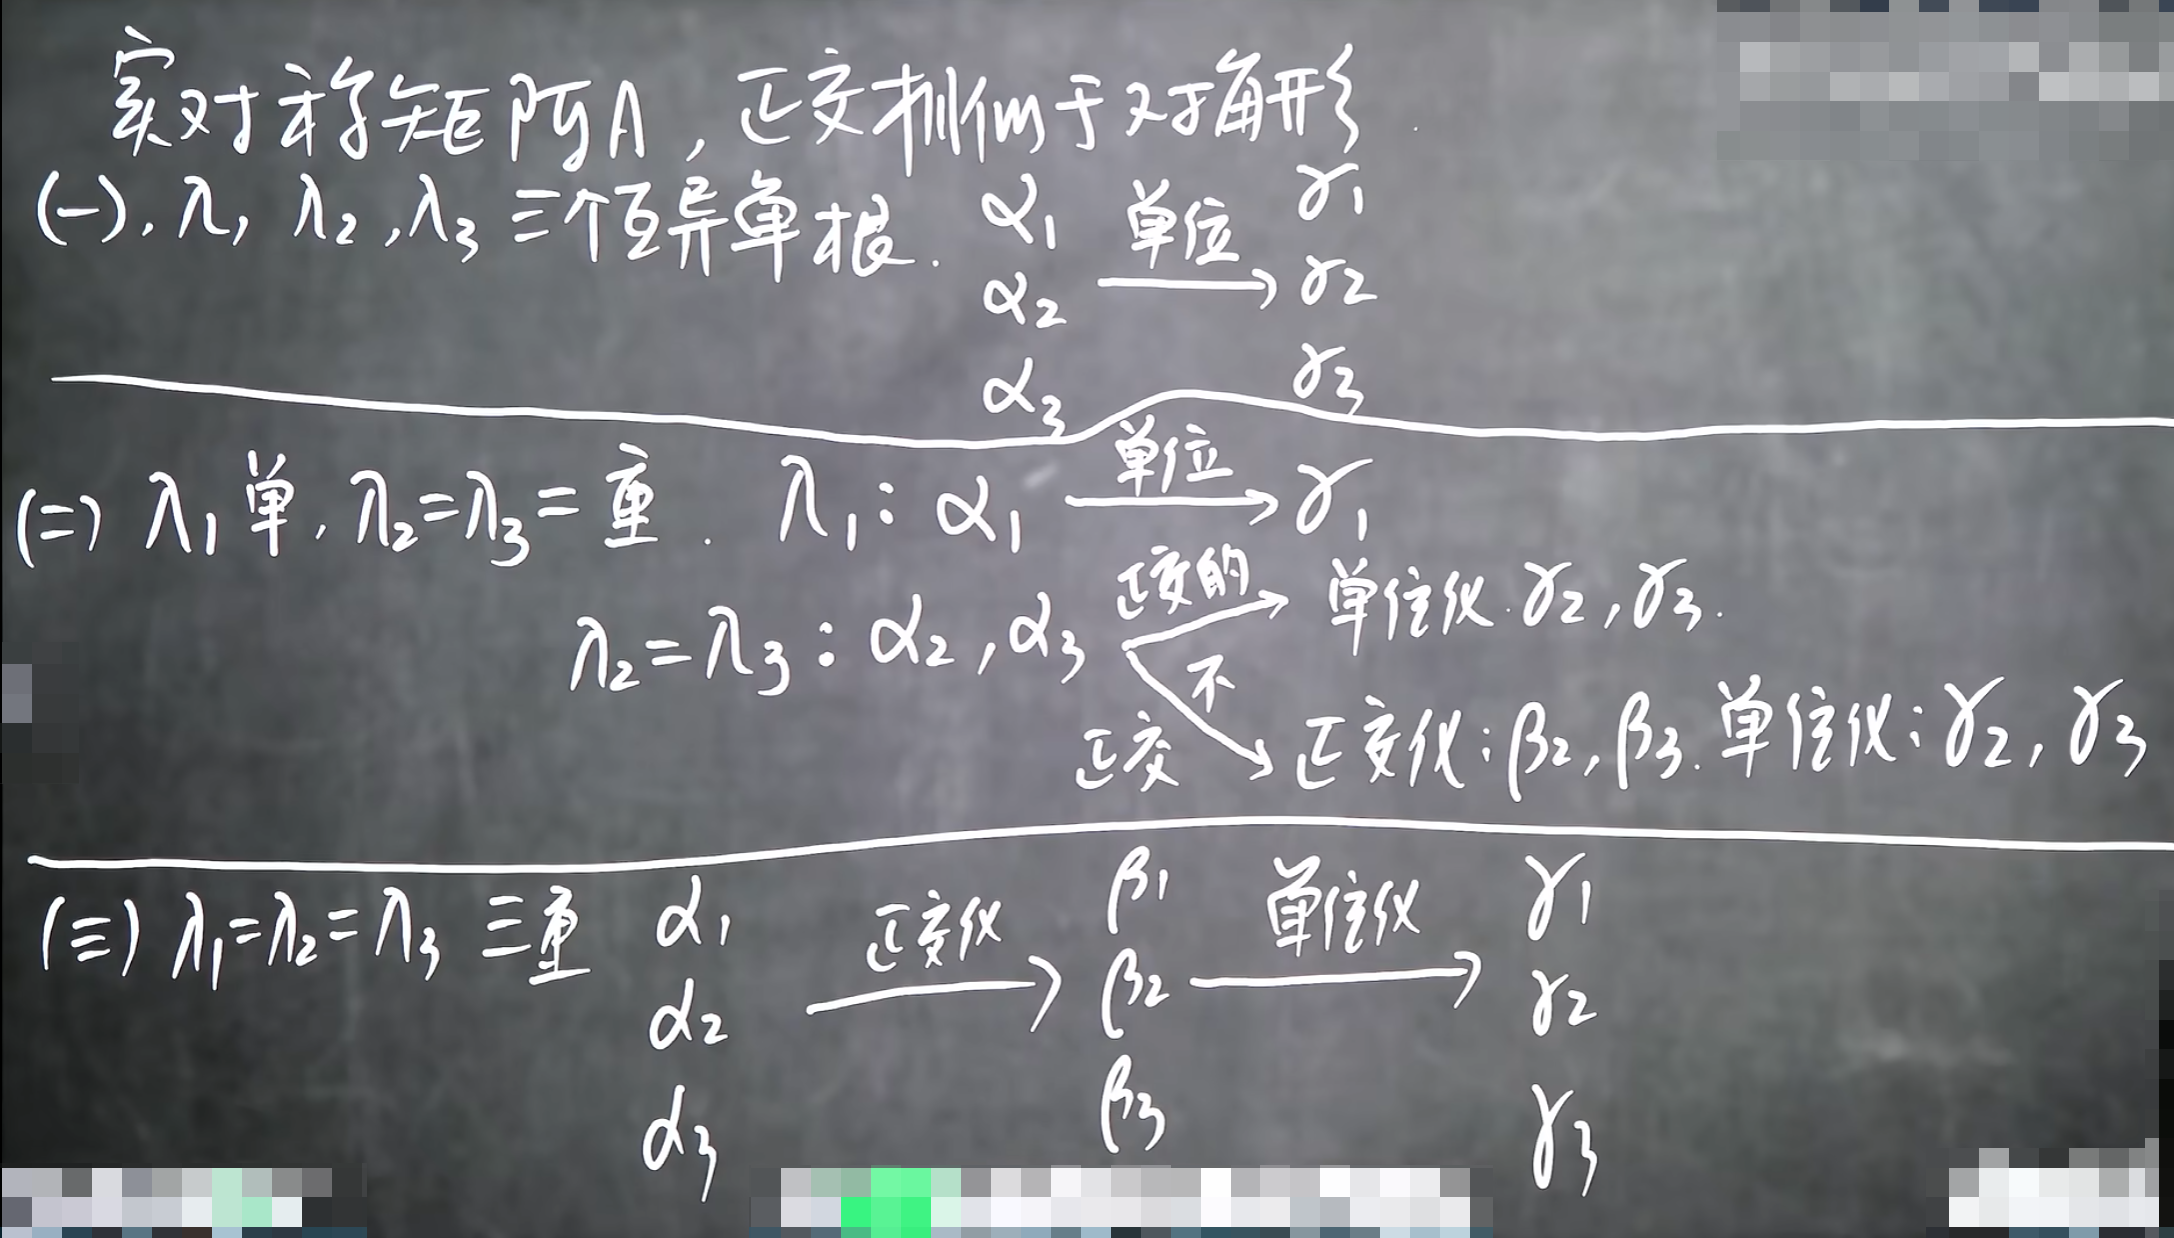 实对称矩阵A，正交相似于对角形.
(一). λ1 λ2，λ3 三个互异单根. α1 单位 γ1
α2 → γ2
α3 γ3
(二) λ1单，λ2=λ3=重. λ1：α1 单位→ γ1
λ2=λ3：α2，α3 正交的→ 单位化. γ2，γ3.
不正交→ 正交化：β2，β3. 单位化：γ2，γ3
(三) λ1=λ2=λ3 三重 α1 正交化 β1 单位化 γ1
α2 → β2 → γ2
α3 β3 γ3